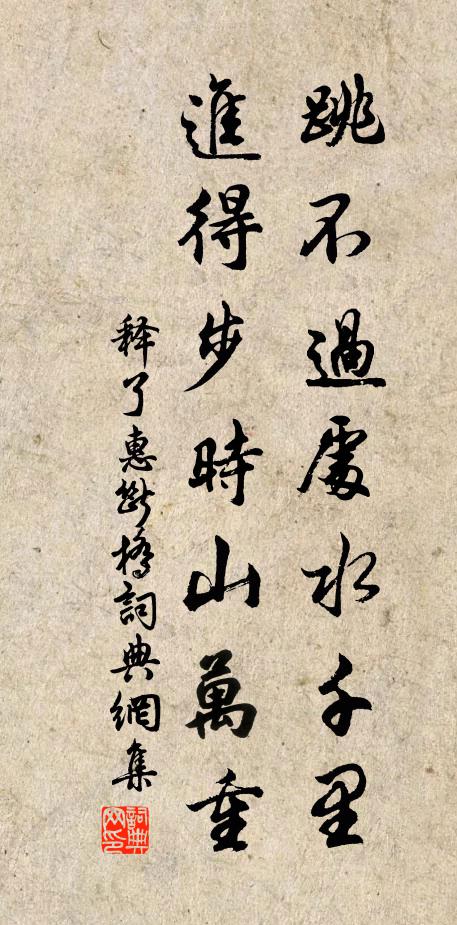 跳不過處水千里
進得步時山萬重
释了惠斷橋詞典網集
詞典网印